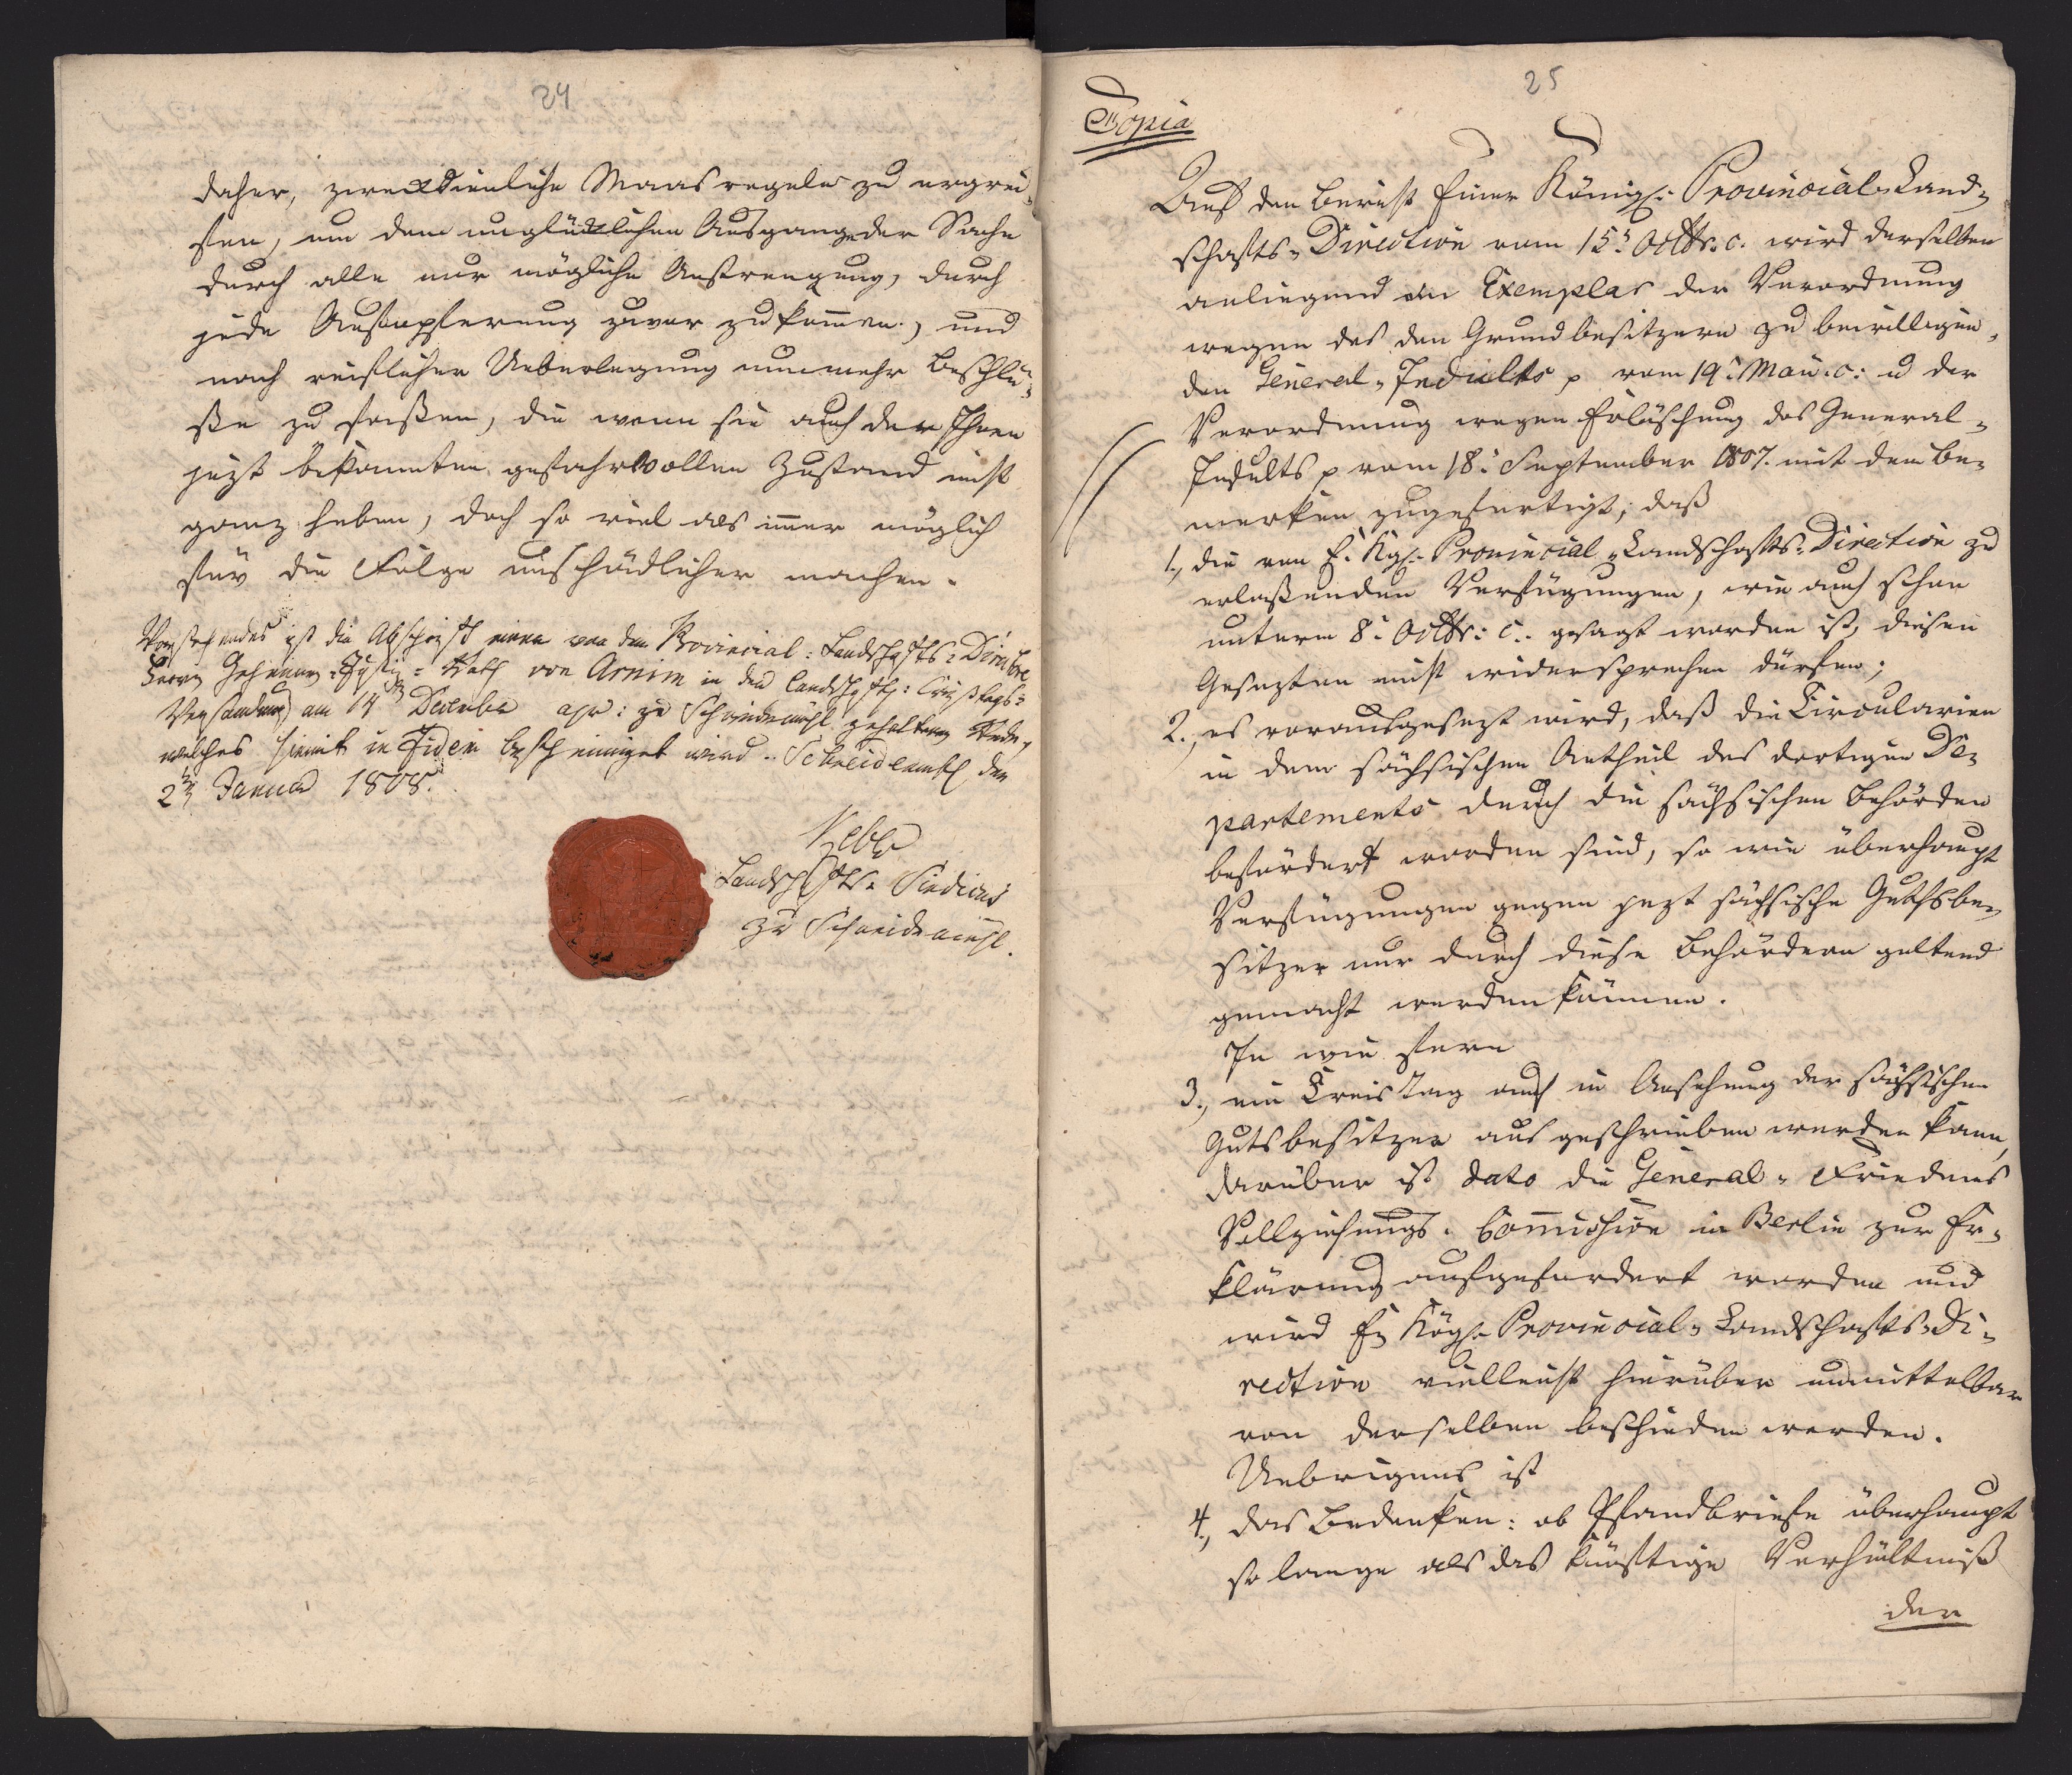 24
daher, zweckdienliche Maasregeln zu ergrei-
fen, um dem unglücklichen Ausgange der Sache
durch alle nur mögliche Anstrengung, durch
jede Aufopferung zuvor zu kommen, und
nach reiflicher Ueberlegung nunmehr Beschlü-
ße zu faßen, die wenn sie auch den Ihnen
jezt bekannten gefahrvollen Zustand nicht
ganz heben, doch so viel als immer möglich
für die Folge unschädlicher machen.
Vorstehendes ist die Abschrift einer von dem Provincial-Landschafts-Director
Herrn Geheimen-Justiz-Rath von Arnim in der landschaftl: Creißtags-
Versamlung am 14 December a pr: zu Schneidemühl gehaltenen Rede,
welches hiemit in Fidem bescheiniget wird. Schneidemühl den
2 Januar 1808.
Landschafts-Sindicus
zu Schneidemühl.
25
Copia
Auf den Bericht Einer Königl: Provincial-Land-
schafts-Direction vom 15t Octbr: c. wird derselben
anliegend ein Exemplar der Verordnung
wegen des den Grundbesitzern zu bewilligen-
den General-Indults p vom 19t May c: u der
Verordnung wegen Erlöschung des General-
Indults p vom 18t September 1807. mit dem Be-
merken zugefertigt, daß
1., die von E. Kgl. Provincial-Landschafts-Direction zu
erlaßenden Verfügungen, wie auch schon
unterm 8t Octbr: c. gesagt worden ist, diesen
Gesezten nicht widersprechen dürfen;
2., es vorausgesezt wird, daß die Circularien
in dem sächsischen Antheil des dortigen De-
partements durch die sächsischen Behörden
befördert worden sind, so wie überhaupt
Verfügungen gegen jezt sächsische Guthsbe-
sitzer nur durch diese Behörden geltend
gemacht werden können.
In wie fern
3., ein Creis Tag auch in Ansehung der sächsischen
Gutsbesitzer ausgeschrieben werden kann,
darüber ist dato die General-Friedens
Vollziehungs-Commission in Berlin zur Er-
klärung aufgefordert worden und
wird E. Kögl. Provincial-Landschafts-Di-
rection vielleicht hierüber unmittelbar
von derselben beschieden werden.
Uebrigens ist
4., das Bedenken: ob Pfandbriefe überhaupt
so lange als das künftige Verhältniß
der